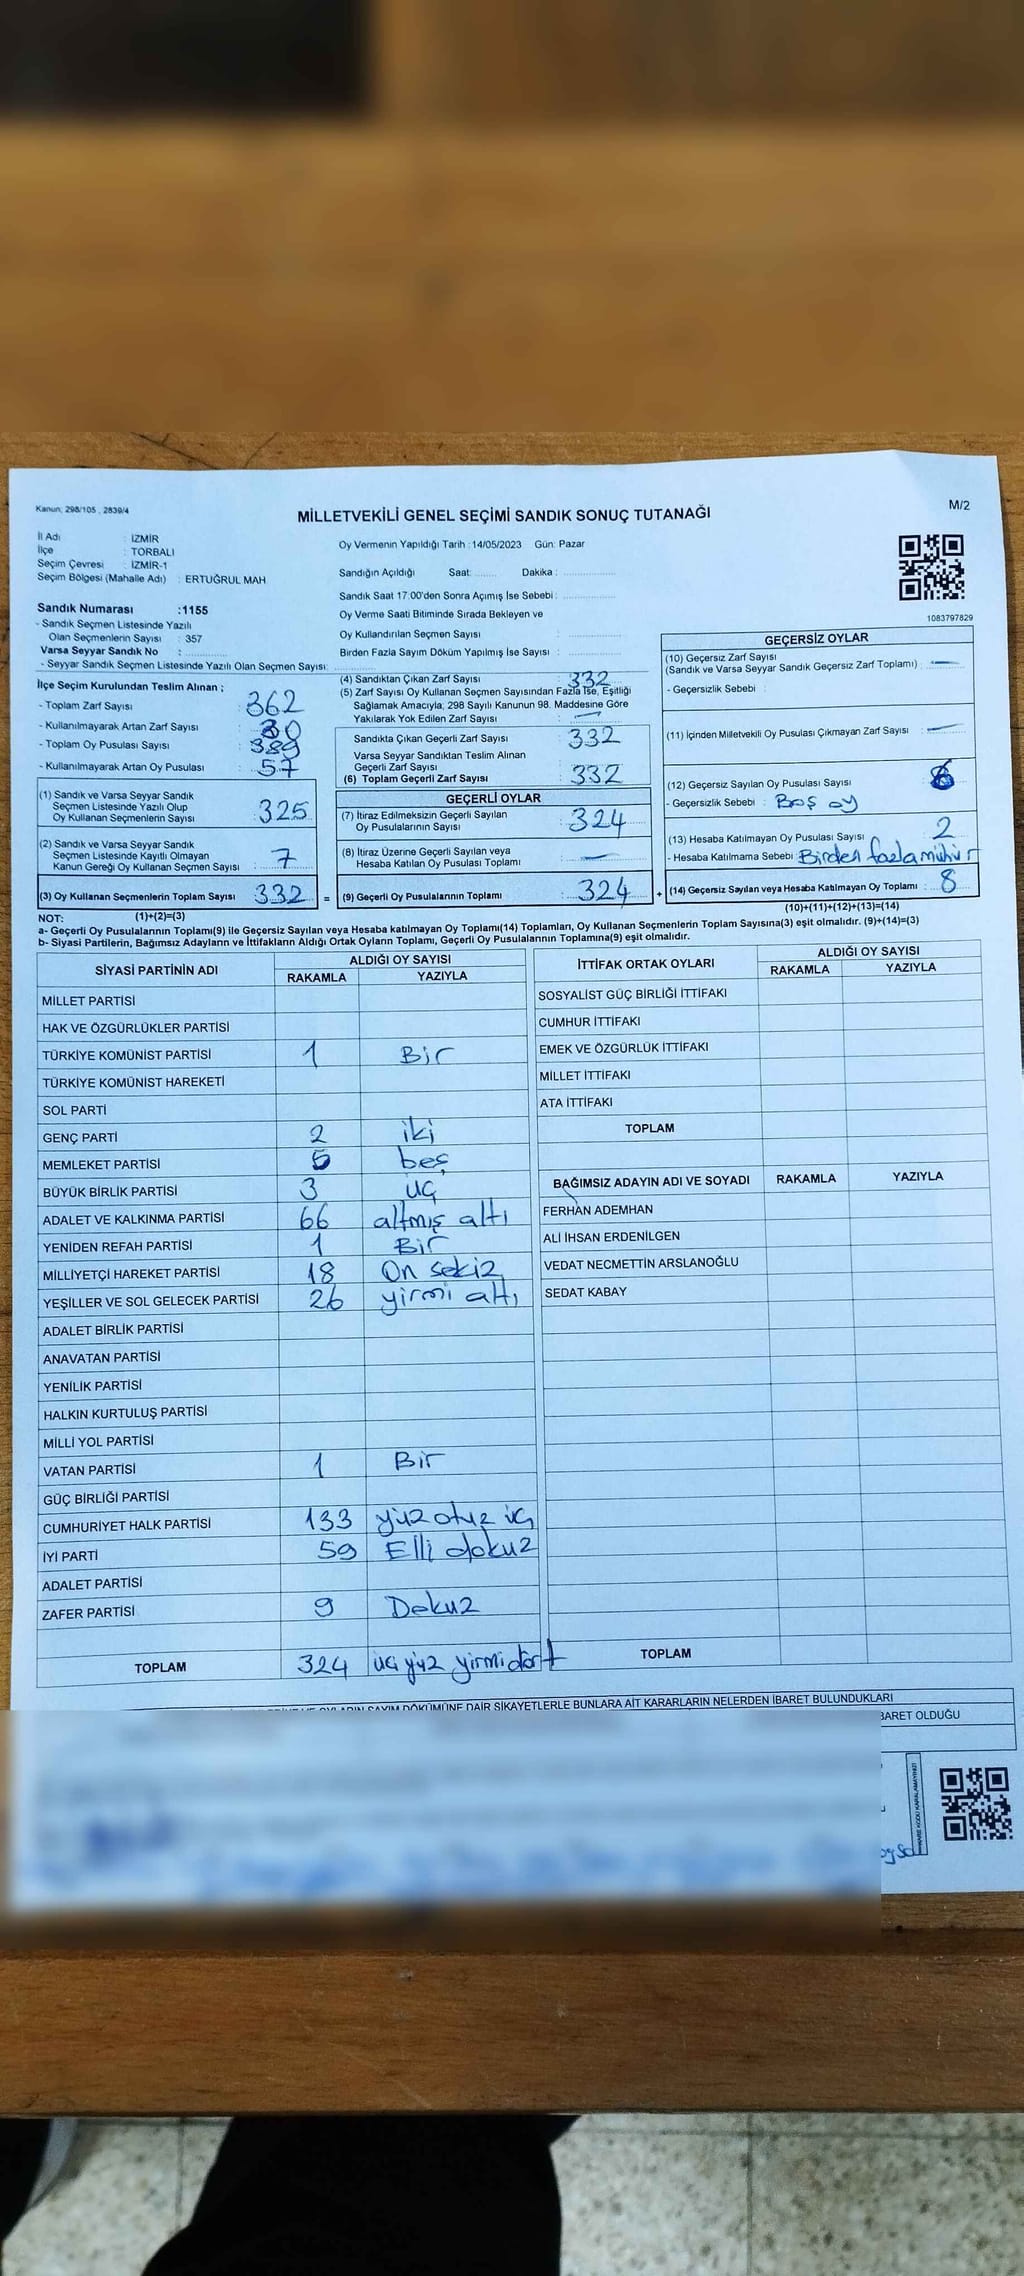 Kanun; 298/105 , 2839/4
MİLLETVEKİLİ GENEL SEÇİMİ SANDIK SONUÇ TUTANAĞI
M/2
İl Adı : İZMİR
İlçe : TORBALI
Seçim Çevresi : İZMİR-1
Seçim Bölgesi (Mahalle Adı) : ERTUĞRUL MAH
Sandık Numarası :1155
- Sandık Seçmen Listesinde Yazılı
Olan Seçmenlerin Sayısı : 357
Varsa Seyyar Sandık No :
- Seyyar Sandık Seçmen Listesinde Yazılı Olan Seçmen Sayısı:
Oy Vermenin Yapıldığı Tarih :14/05/2023 Gün: Pazar
Sandığın Açıldığı Saat: Dakika :
Sandık Saat 17:00'den Sonra Açımış İse Sebebi :
Oy Verme Saati Bitiminde Sırada Bekleyen ve
Oy Kullandırılan Seçmen Sayısı :
Birden Fazla Sayım Döküm Yapılmış İse Sayısı :
1083797829
İlçe Seçim Kurulundan Teslim Alınan ;
- Toplam Zarf Sayısı : 362
- Kullanılmayarak Artan Zarf Sayısı : 30
- Toplam Oy Pusulası Sayısı : 389
- Kullanılmayarak Artan Oy Pusulası : 57
(1) Sandık ve Varsa Seyyar Sandık
Seçmen Listesinde Yazılı Olup
Oy Kullanan Seçmenlerin Sayısı : 325
(2) Sandık ve Varsa Seyyar Sandık
Seçmen Listesinde Kayıtlı Olmayan
Kanun Gereği Oy Kullanan Seçmen Sayısı : 7
(3) Oy Kullanan Seçmenlerin Toplam Sayısı : 332
(4) Sandıktan Çıkan Zarf Sayısı : 332
(5) Zarf Sayısı Oy Kullanan Seçmen Sayısından Fazla İse, Eşitliği
Sağlamak Amacıyla; 298 Sayılı Kanunun 98. Maddesine Göre
Yakılarak Yok Edilen Zarf Sayısı : —
Sandıkta Çıkan Geçerli Zarf Sayısı : 332
Varsa Seyyar Sandıktan Teslim Alınan
Geçerli Zarf Sayısı :
(6) Toplam Geçerli Zarf Sayısı : 332
GEÇERLİ OYLAR
(7) İtiraz Edilmeksizin Geçerli Sayılan
Oy Pusulalarının Sayısı : 324
(8) İtiraz Üzerine Geçerli Sayılan veya
Hesaba Katılan Oy Pusulası Toplamı : —
= (9) Geçerli Oy Pusulalarının Toplamı : 324
GEÇERSİZ OYLAR
(10) Geçersiz Zarf Sayısı
(Sandık ve Varsa Seyyar Sandık Geçersiz Zarf Toplamı) : —
- Geçersizlik Sebebi :
(11) İçinden Milletvekili Oy Pusulası Çıkmayan Zarf Sayısı : —
(12) Geçersiz Sayılan Oy Pusulası Sayısı : 6
- Geçersizlik Sebebi : Boş oy
(13) Hesaba Katılmayan Oy Pusulası Sayısı : 2
- Hesaba Katılmama Sebebi : Birden fazla mühür
+ (14) Geçersiz Sayılan veya Hesaba Katılmayan Oy Toplamı : 8
NOT: (1)+(2)=(3)
(10)+(11)+(12)+(13)=(14)
a- Geçerli Oy Pusulalarının Toplamı(9) ile Geçersiz Sayılan veya Hesaba katılmayan Oy Toplamı(14) Toplamları, Oy Kullanan Seçmenlerin Toplam Sayısına(3) eşit olmalıdır. (9)+(14)=(3)
b- Siyasi Partilerin, Bağımsız Adayların ve İttifakların Aldığı Ortak Oyların Toplamı, Geçerli Oy Pusulalarının Toplamına(9) eşit olmalıdır.
SİYASİ PARTİNİN ADI
ALDIĞI OY SAYISI
RAKAMLA YAZIYLA
MİLLET PARTİSİ
HAK VE ÖZGÜRLÜKLER PARTİSİ
TÜRKİYE KOMÜNİST PARTİSİ 1 Bir
TÜRKİYE KOMÜNİST HAREKETİ
SOL PARTİ
GENÇ PARTİ 2 iki
MEMLEKET PARTİSİ 5 beş
BÜYÜK BİRLİK PARTİSİ 3 üç
ADALET VE KALKINMA PARTİSİ 66 altmış altı
YENİDEN REFAH PARTİSİ 1 Bir
MİLLİYETÇİ HAREKET PARTİSİ 18 On sekiz
YEŞİLLER VE SOL GELECEK PARTİSİ 26 yirmi altı
ADALET BİRLİK PARTİSİ
ANAVATAN PARTİSİ
YENİLİK PARTİSİ
HALKIN KURTULUŞ PARTİSİ
MİLLİ YOL PARTİSİ
VATAN PARTİSİ 1 Bir
GÜÇ BİRLİĞİ PARTİSİ
CUMHURİYET HALK PARTİSİ 133 yüz otuz üç
İYİ PARTİ 59 Elli dokuz
ADALET PARTİSİ
ZAFER PARTİSİ 9 Dokuz
TOPLAM 324 üç yüz yirmi dört
İTTİFAK ORTAK OYLARI
ALDIĞI OY SAYISI
RAKAMLA YAZIYLA
SOSYALİST GÜÇ BİRLİĞİ İTTİFAKI
CUMHUR İTTİFAKI
EMEK VE ÖZGÜRLÜK İTTİFAKI
MİLLET İTTİFAKI
ATA İTTİFAKI
TOPLAM
BAĞIMSIZ ADAYIN ADI VE SOYADI RAKAMLA YAZIYLA
FERHAN ADEMHAN
ALİ İHSAN ERDENİLGEN
VEDAT NECMETTİN ARSLANOĞLU
SEDAT KABAY
TOPLAM
SAYIM DÖKÜMÜNE DAİR ŞİKAYETLERLE BUNLARA AİT KARARLARIN NELERDEN İBARET BULUNDUKLARI
BARET OLDUĞU